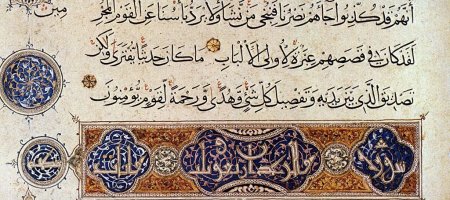 أنهم قد كذبوا جاءهم نصرنا فنجي من نشاء ولا يرد بأسنا عن القوم المجرمين
لقد كان في قصصهم عبرة لأولي الألباب ما كان حديثا يفترى ولكن
تصديق الذي بين يديه وتفصيل كل شيء وهدى ورحمة لقوم يؤمنون
سورة الرعد